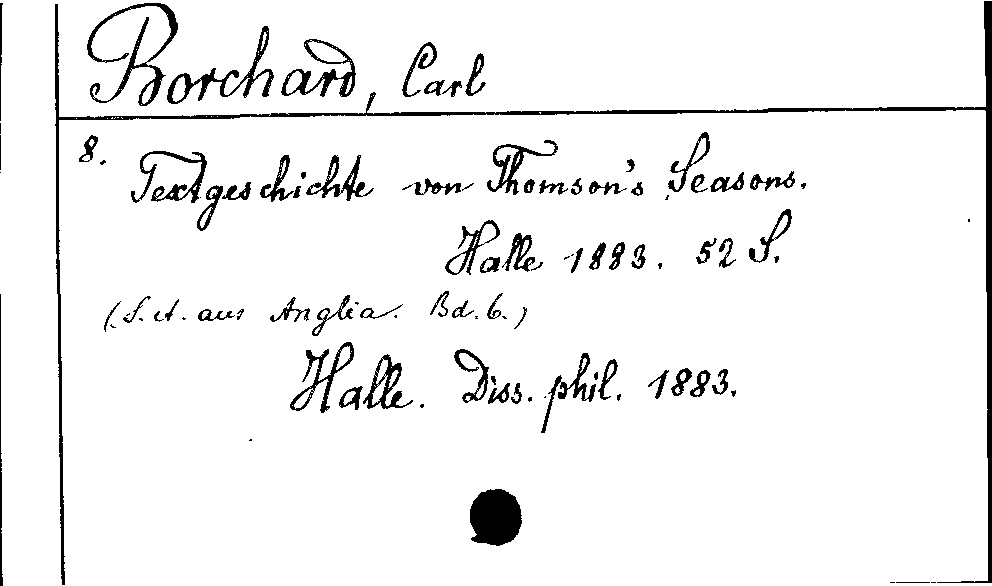 Borchard, Carl
8.
Textgeschichte von Thomson's Seasons.
Halle 1883. 52 S.
(S.A. aus Anglia. Bd. 6.)
Halle. Diss. phil. 1883.